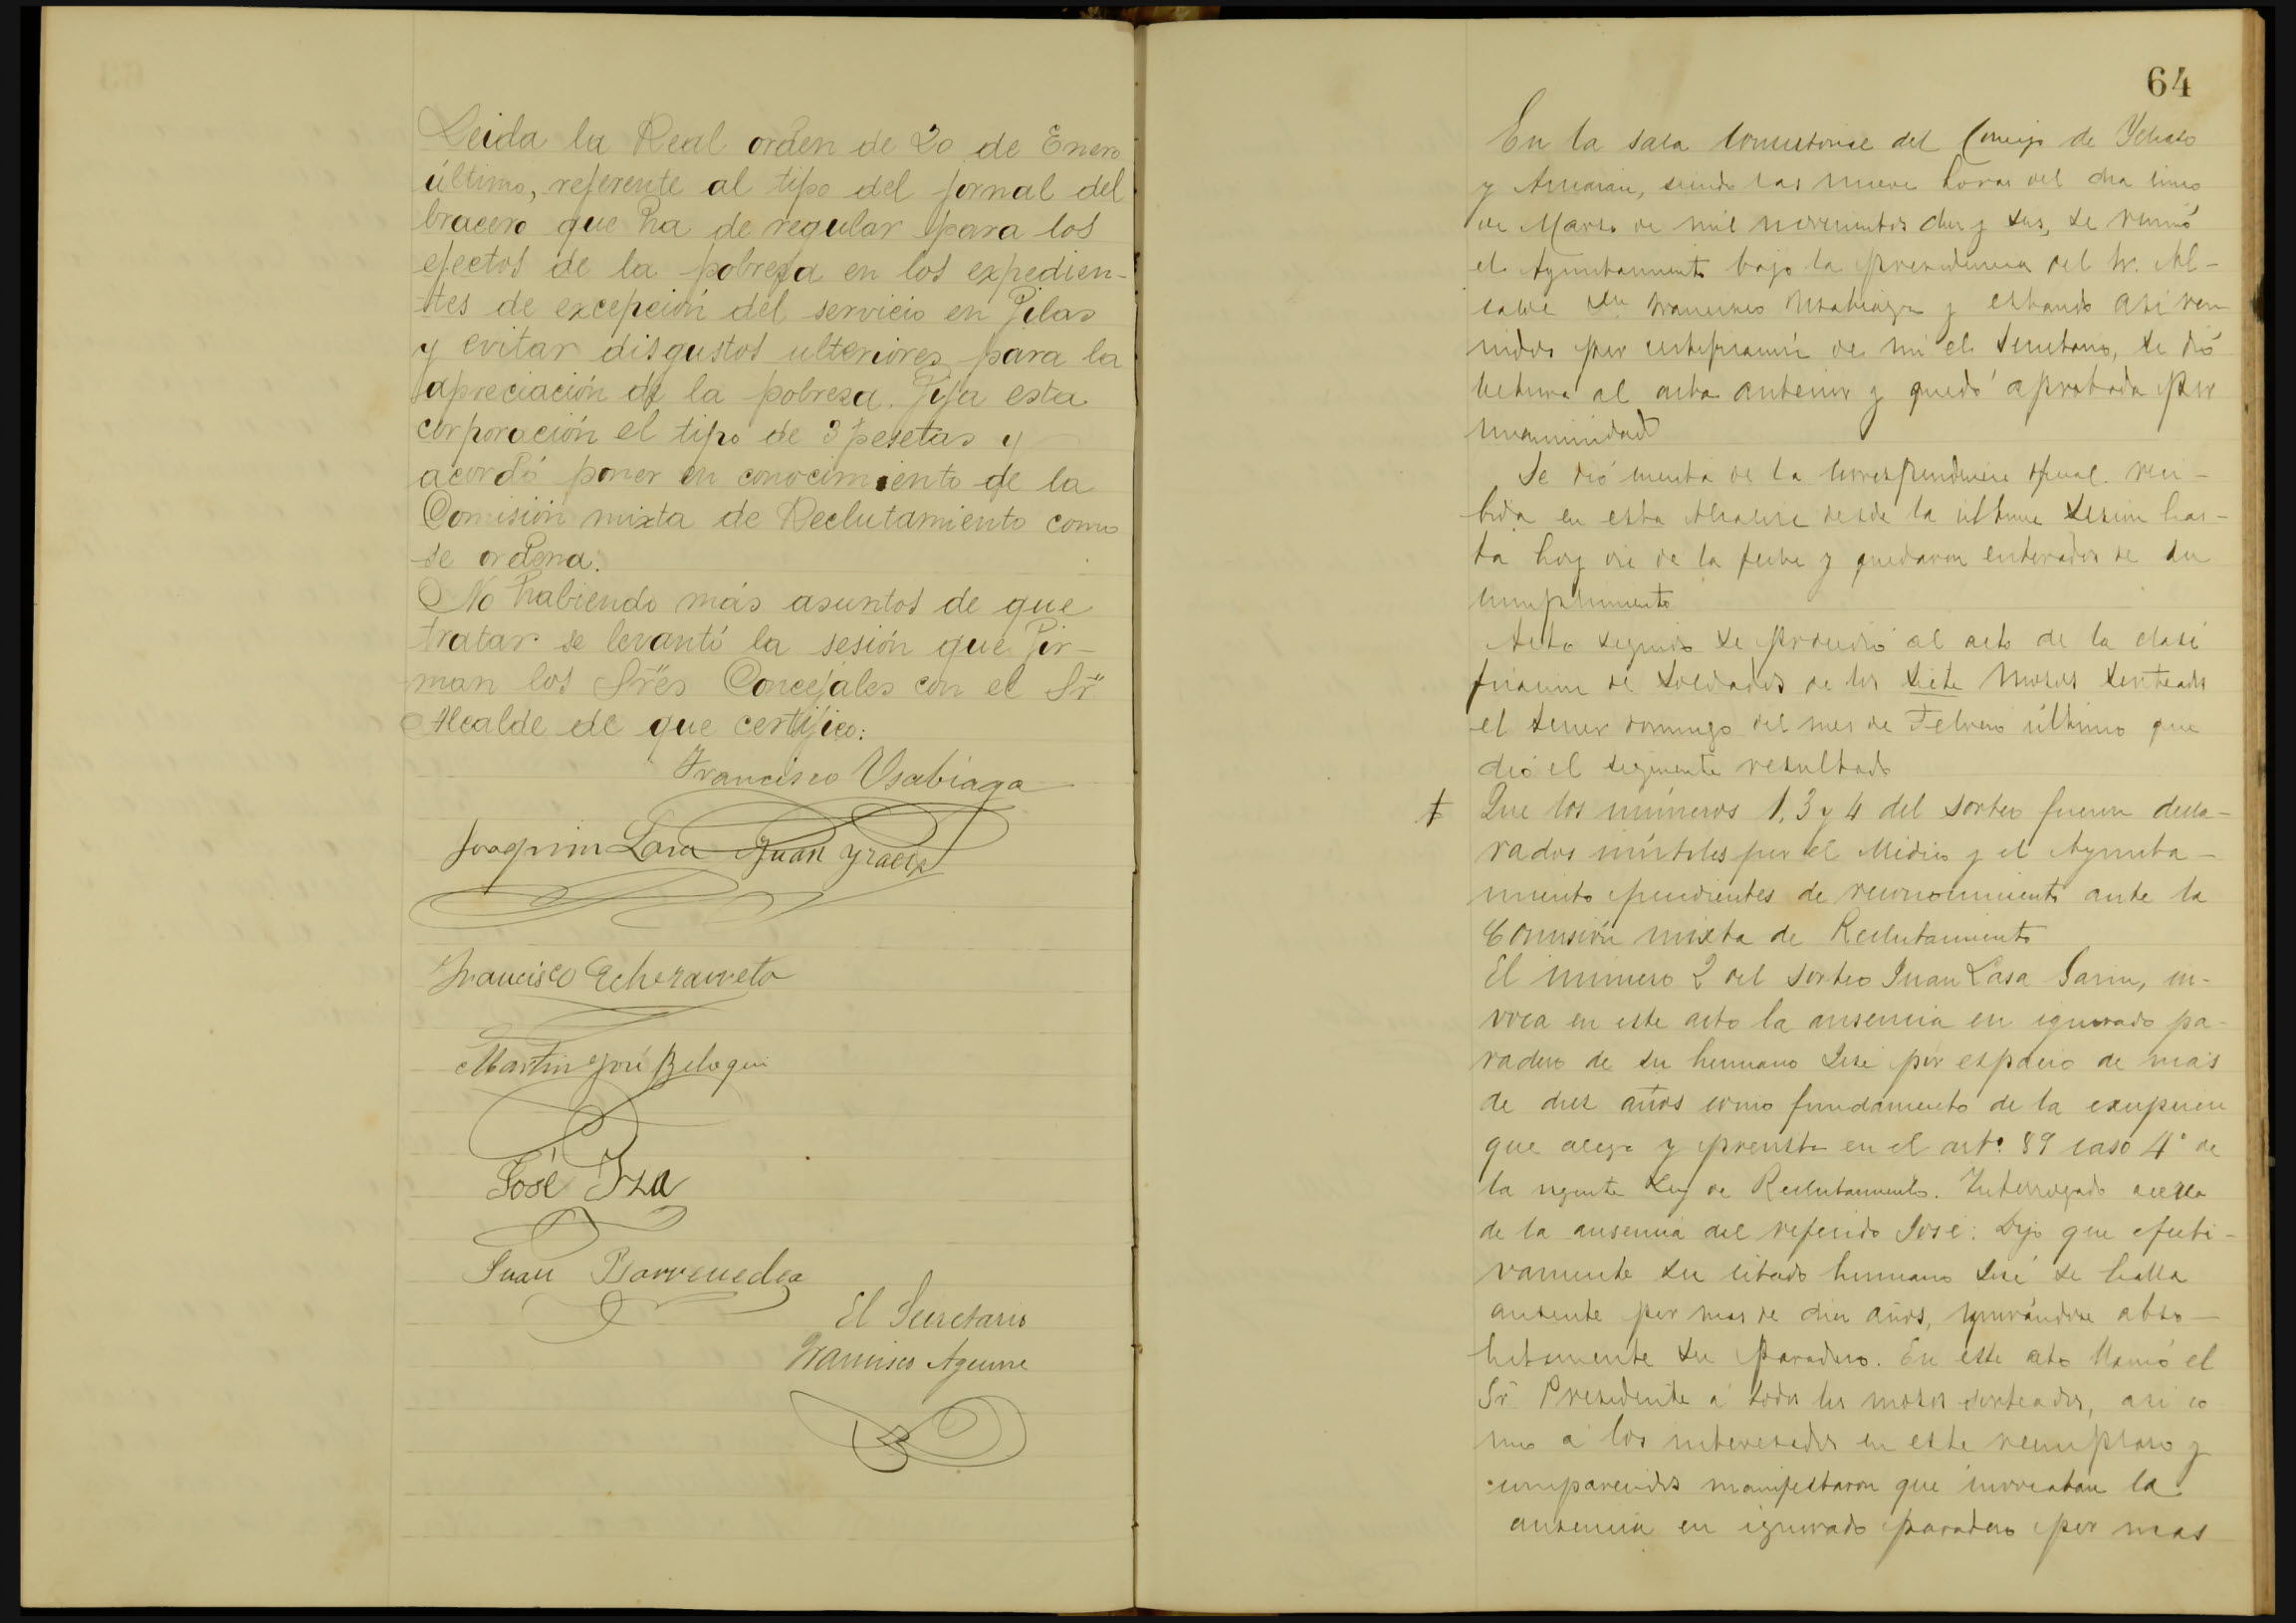 Leida la Real orden de 20 de Enero
último, referente al tipo del jornal del
bracero que ha de regular para los
efectos de la pobreza en los expedien-
-tes de excepción del servicio en filas
y evitar disgustos ulteriores para la
apreciación de la pobreza. Fija esta
corporación el tipo de 3 pesetas y
acordó poner en conocimiento de la
Comisión mixta de Reclutamiento como
se ordena.
No habiendo más asuntos de que
tratar se levantó la sesión que fir-
man los Sres Concejales con el Sr
Alcalde de que certifico:
Francisco Usabiaga
Joaquin Lasa Juan
Francisco Echezarreta
Martin José Beloqui
José Iza
Juan Barrenedea
El Secretario
Francisco Aguirre
64
En la sala Consistorial del Concejo de Ychaso
y Arriaran, siendo las nueve horas del dia cinco
de Marzo de mil novecientos diez y seis, se reunió
el Ayuntamiento bajo la presidencia del Sr. Al-
calde Dn Francisco Usabiaga y estando asi reu
nidos por certificación de mi el Secretario, se dió
lectura al acta anterior y quedó aprobada por
unanimidad
Se dió cuenta de la correspondencia oficial reci-
bida en esta Alcaldia desde la última sesión has-
ta hoy dia de la fecha y quedaron enterados de su
cumplimiento
Acto seguido se procedió al acto de la clasi
ficación de soldados de los siete mozos sorteados
el tercer domingo del mes de Febrero último que
dió el siguiente resultado
Que los números 1, 3 y 4 del sorteo fueron decla-
rados inútiles por el Médico y el Ayunta-
miento pendientes de reconocimiento ante la
Comisión mixta de Reclutamiento
El número 2 del sorteo Juan Lasa Garin, in-
voca en este acto la ausencia en ignorado pa-
radero de su hermano José por espacio de más
de diez años como fundamento de la excepción
que alega y prevista en el artº 89 caso 4º de
la vigente Ley de Reclutamiento. Interrogado acerca
de la ausencia del referido José: Dijo que efecti-
vamente su citado hermano José se halla
ausente por mas de diez años, ignorándose abso-
lutamente su paradero. En este acto llamó el
Sr Presidente á todos los mozos sorteados, asi co
mo á los interesados en este reemplazo y
comparecidos manifestaron que invocaban la
ausencia en ignorado paradero por mas